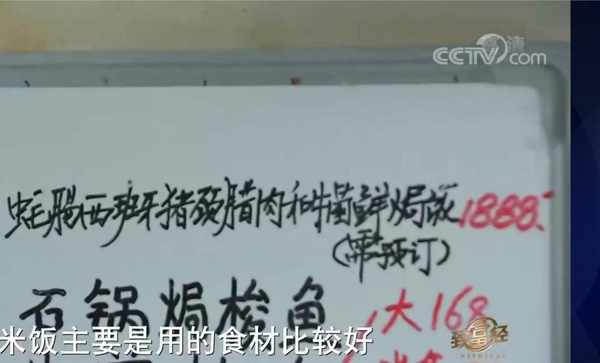 CCTV.com
清
西班牙猪颈腊肉和牛鲜焗饭 1888.-
(需预订)
石锅焗梭鱼 大168
米饭主要是用的食材比较好
致富经